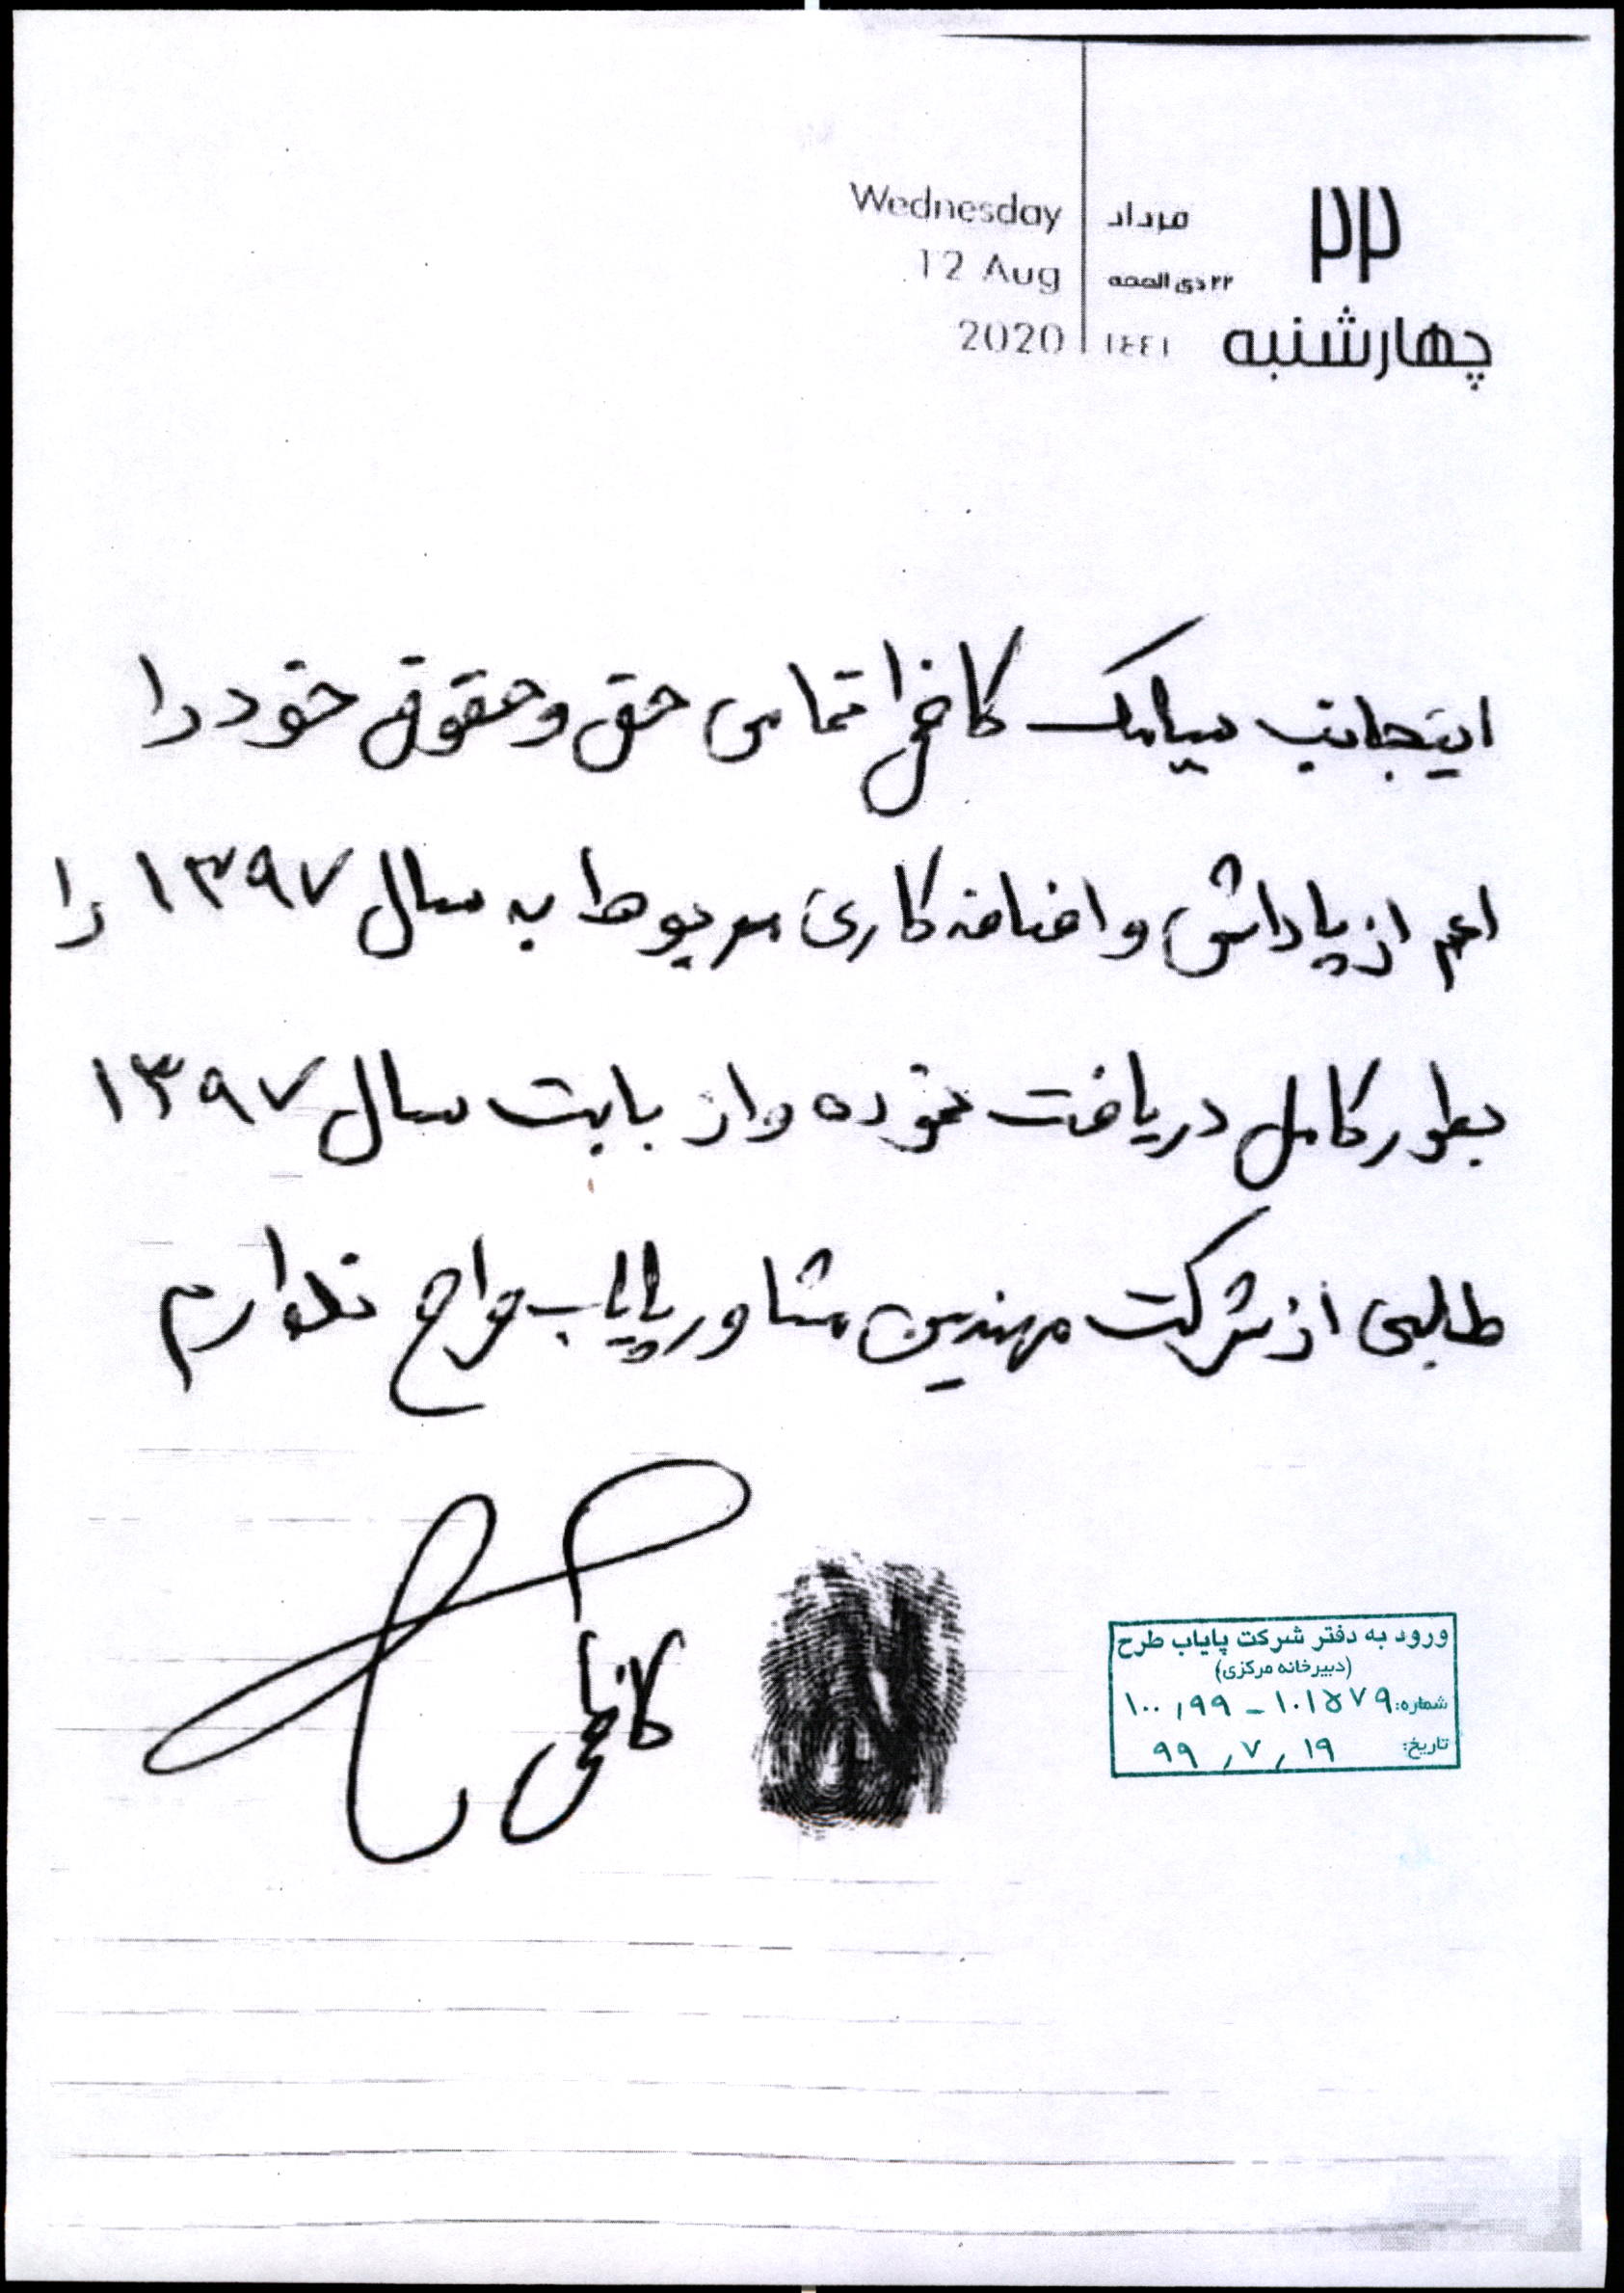 ۲۲
چهارشنبه
مرداد
۲۲ ذی الحجه
١٤٤١
Wednesday
12 Aug
2020
اینجانب سیامک کاظمی تمامی حق و حقوق خود را
اعم از پاداش و اضافه کاری مربوط به سال ۱۳۹۷ را
بطور کامل دریافت نموده و از بابت سال ۱۳۹۷
طلبی از شرکت مهندسین مشاور پایاب طرح ندارم
کاظمی
ورود به دفتر شرکت پایاب طرح
(دبیرخانه مرکزی)
شماره: ۱۰۰,۹۹ - ۱۰۱۵۷۹
تاریخ: ۹۹ , ۷ , ۱۹